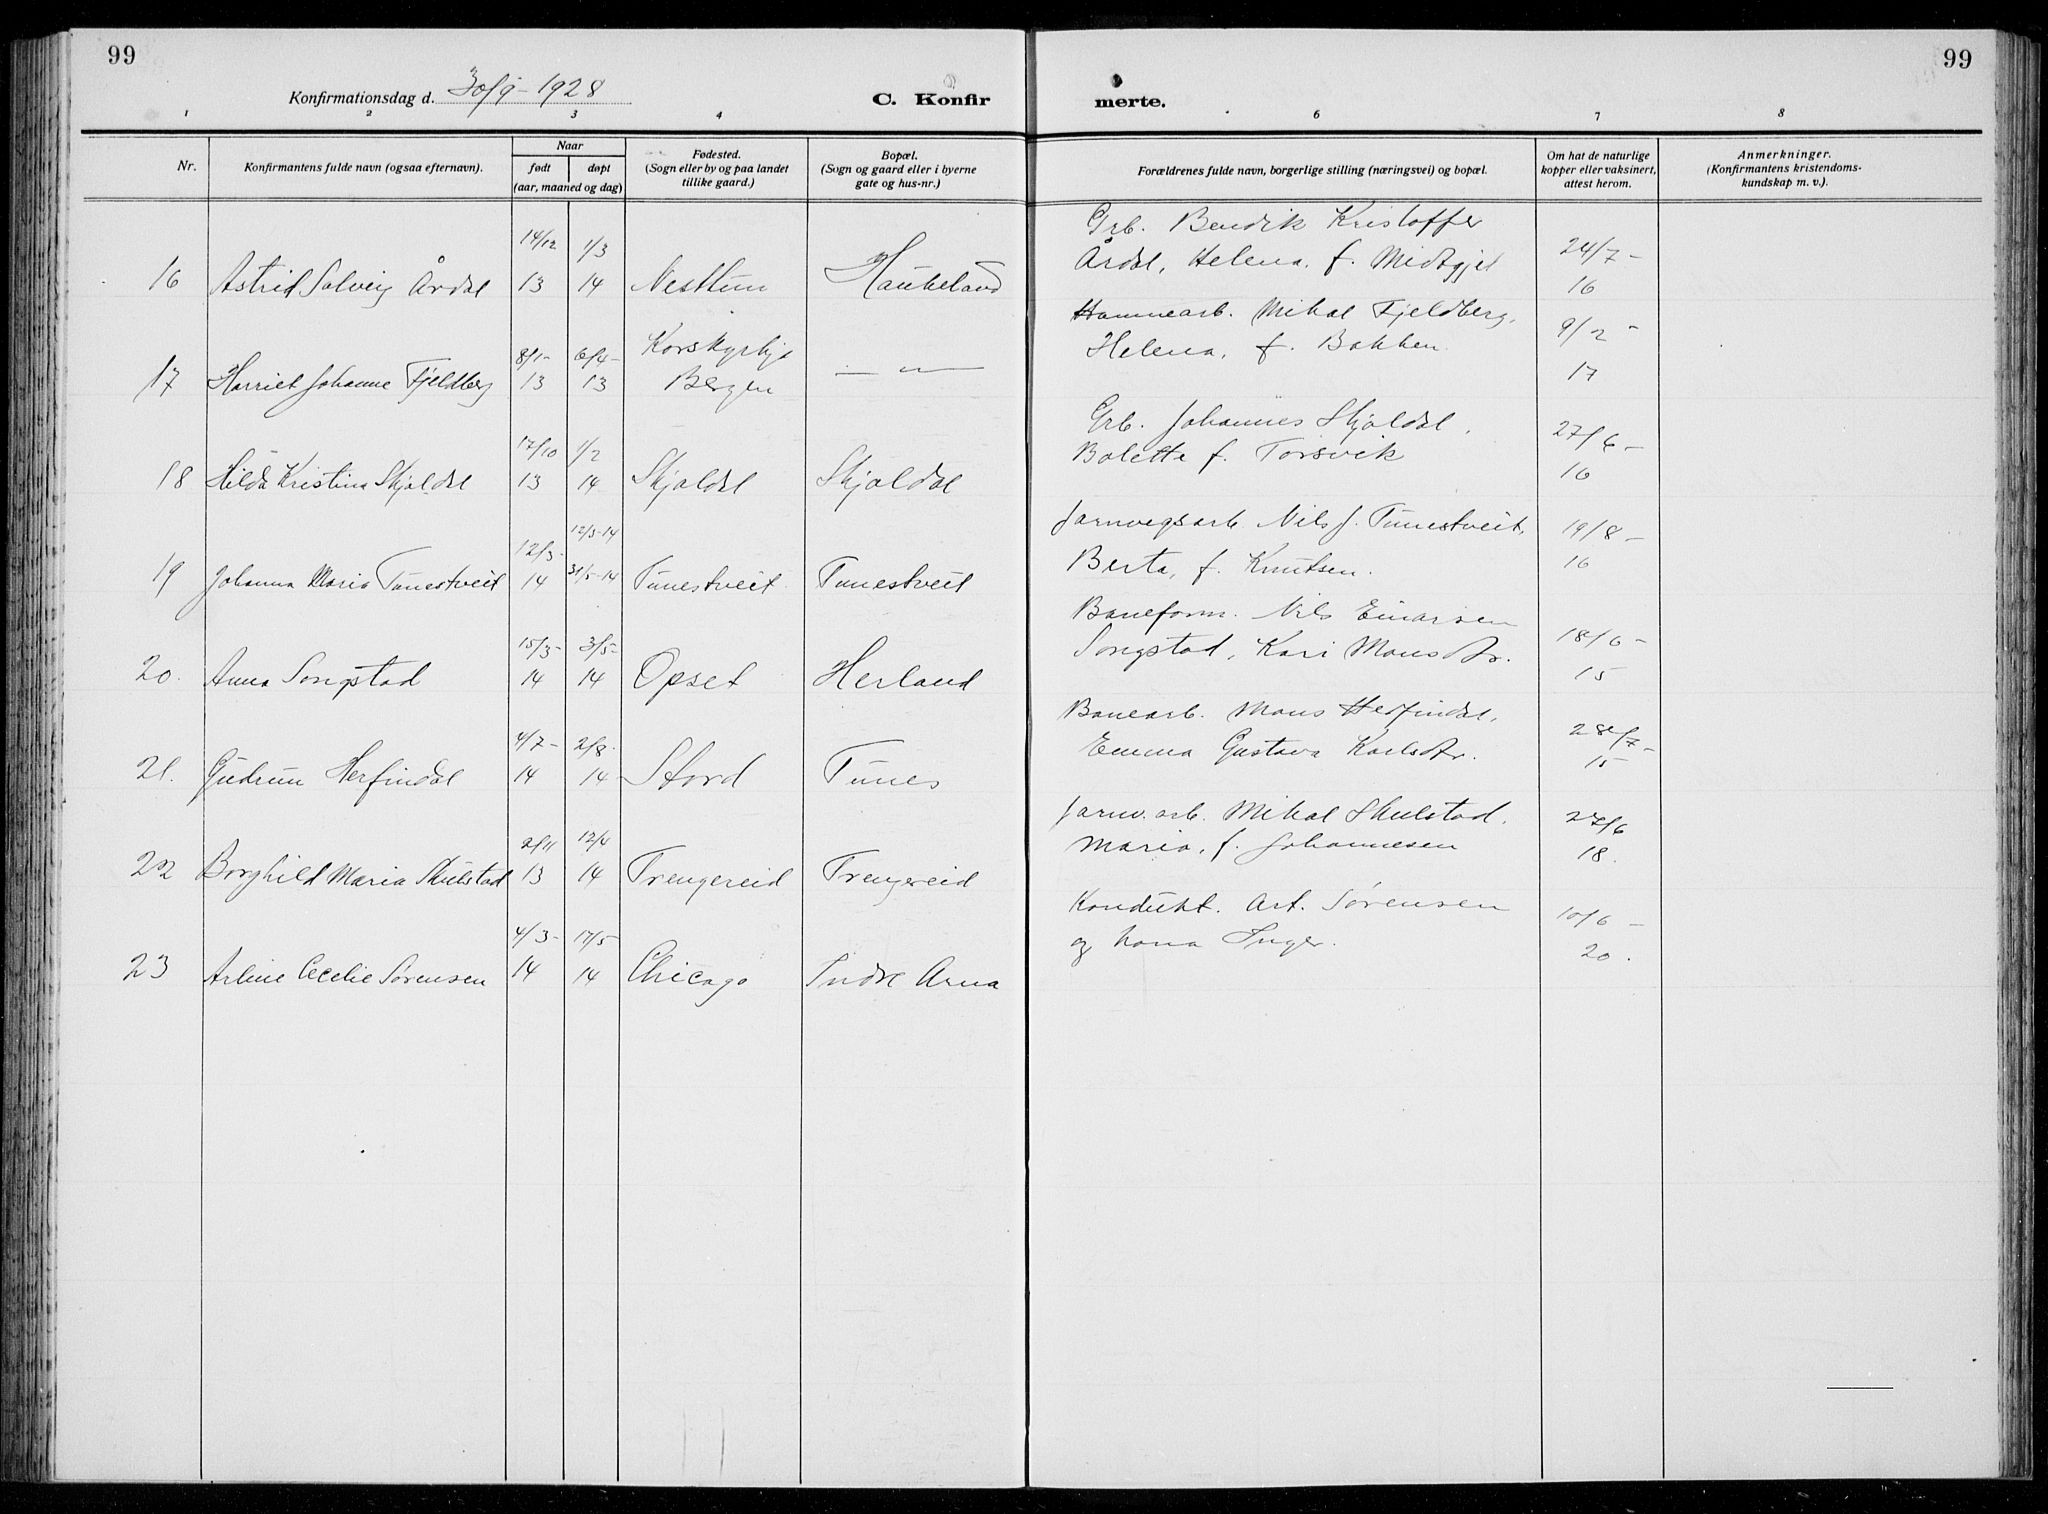 99
99
Konfirmationsdag d. 30/9 - 1928
C. Konfir
merte.
1 2 3 4 6 7 8
Nr.
Konfirmantens fulde navn (ogsaa efternavn).
Naar
født døpt
(aar, maaned og dag)
Fødested.
(Sogn eller by og paa landet
tillike gaard.)
Bopæl.
(Sogn og gaard eller i byerne
gate og hus-nr.)
Forældrenes fulde navn, borgerlige stilling (næringsvei) og bopæl.
Om hat de naturlige
kopper eller vaksinert,
attest herom.
Anmerkninger.
(Konfirmantens kristendoms-
kundskap m. v.).
14/12 1/3 Grb. Bendik Kristoffer
16 Astrid Solveig Årdal 13 14 Nesttun Haukeland Årdal, Helena, f. Midtgjel 24/7 - 16
8/1 - 6/4 - Korskyrkje Hammearb. Mikal Fjeldberg,
17 Harriet Johanne Fjeldberg 13 13 Bergen — " — Helena, f. Bakken. 9/2 - 17
17/10 1/2 Grb. Johannes Skjaldal,
18 Hilda Kristina Skjaldal 13 14 Skjaldal Skjaldal Bolette f. Torsvik 27/6 - 16
12/3 - 12/3-14 Jarnvegsarb. Nils J. Tunestveit,
19 Johanna Maria Tunestveit 14 31/5-14 Tunestveit Tunestveit Berta, f. Knutsen. 19/8 - 16
15/3 - 3/5 - Baneform. Nils Einarsen
20. Anna Songstad 14 14 Opset Herland Songstad, Kari Monsdtr. 18/6 - 15
4/7 - 2/8. Banearb. Mons Herfindal,
21. Gudrun Herfindal 14 14 Stord Tunes Emma Gustava Karlsdtr. 28/7 - 15
2/11 12/4 Jarnv.arb. Mikal Skulstad,
22 Borghild Maria Skulstad 13 14 Trengereid Trengereid Maria, f. Johannesen 27/6 18.
4/3 - 17/5 - Kondukt. Art. Sørensen
23 Arline Cecelie Sørensen 14 14 Chicago Indre Arna og kona Inger. 10/6 - 20.